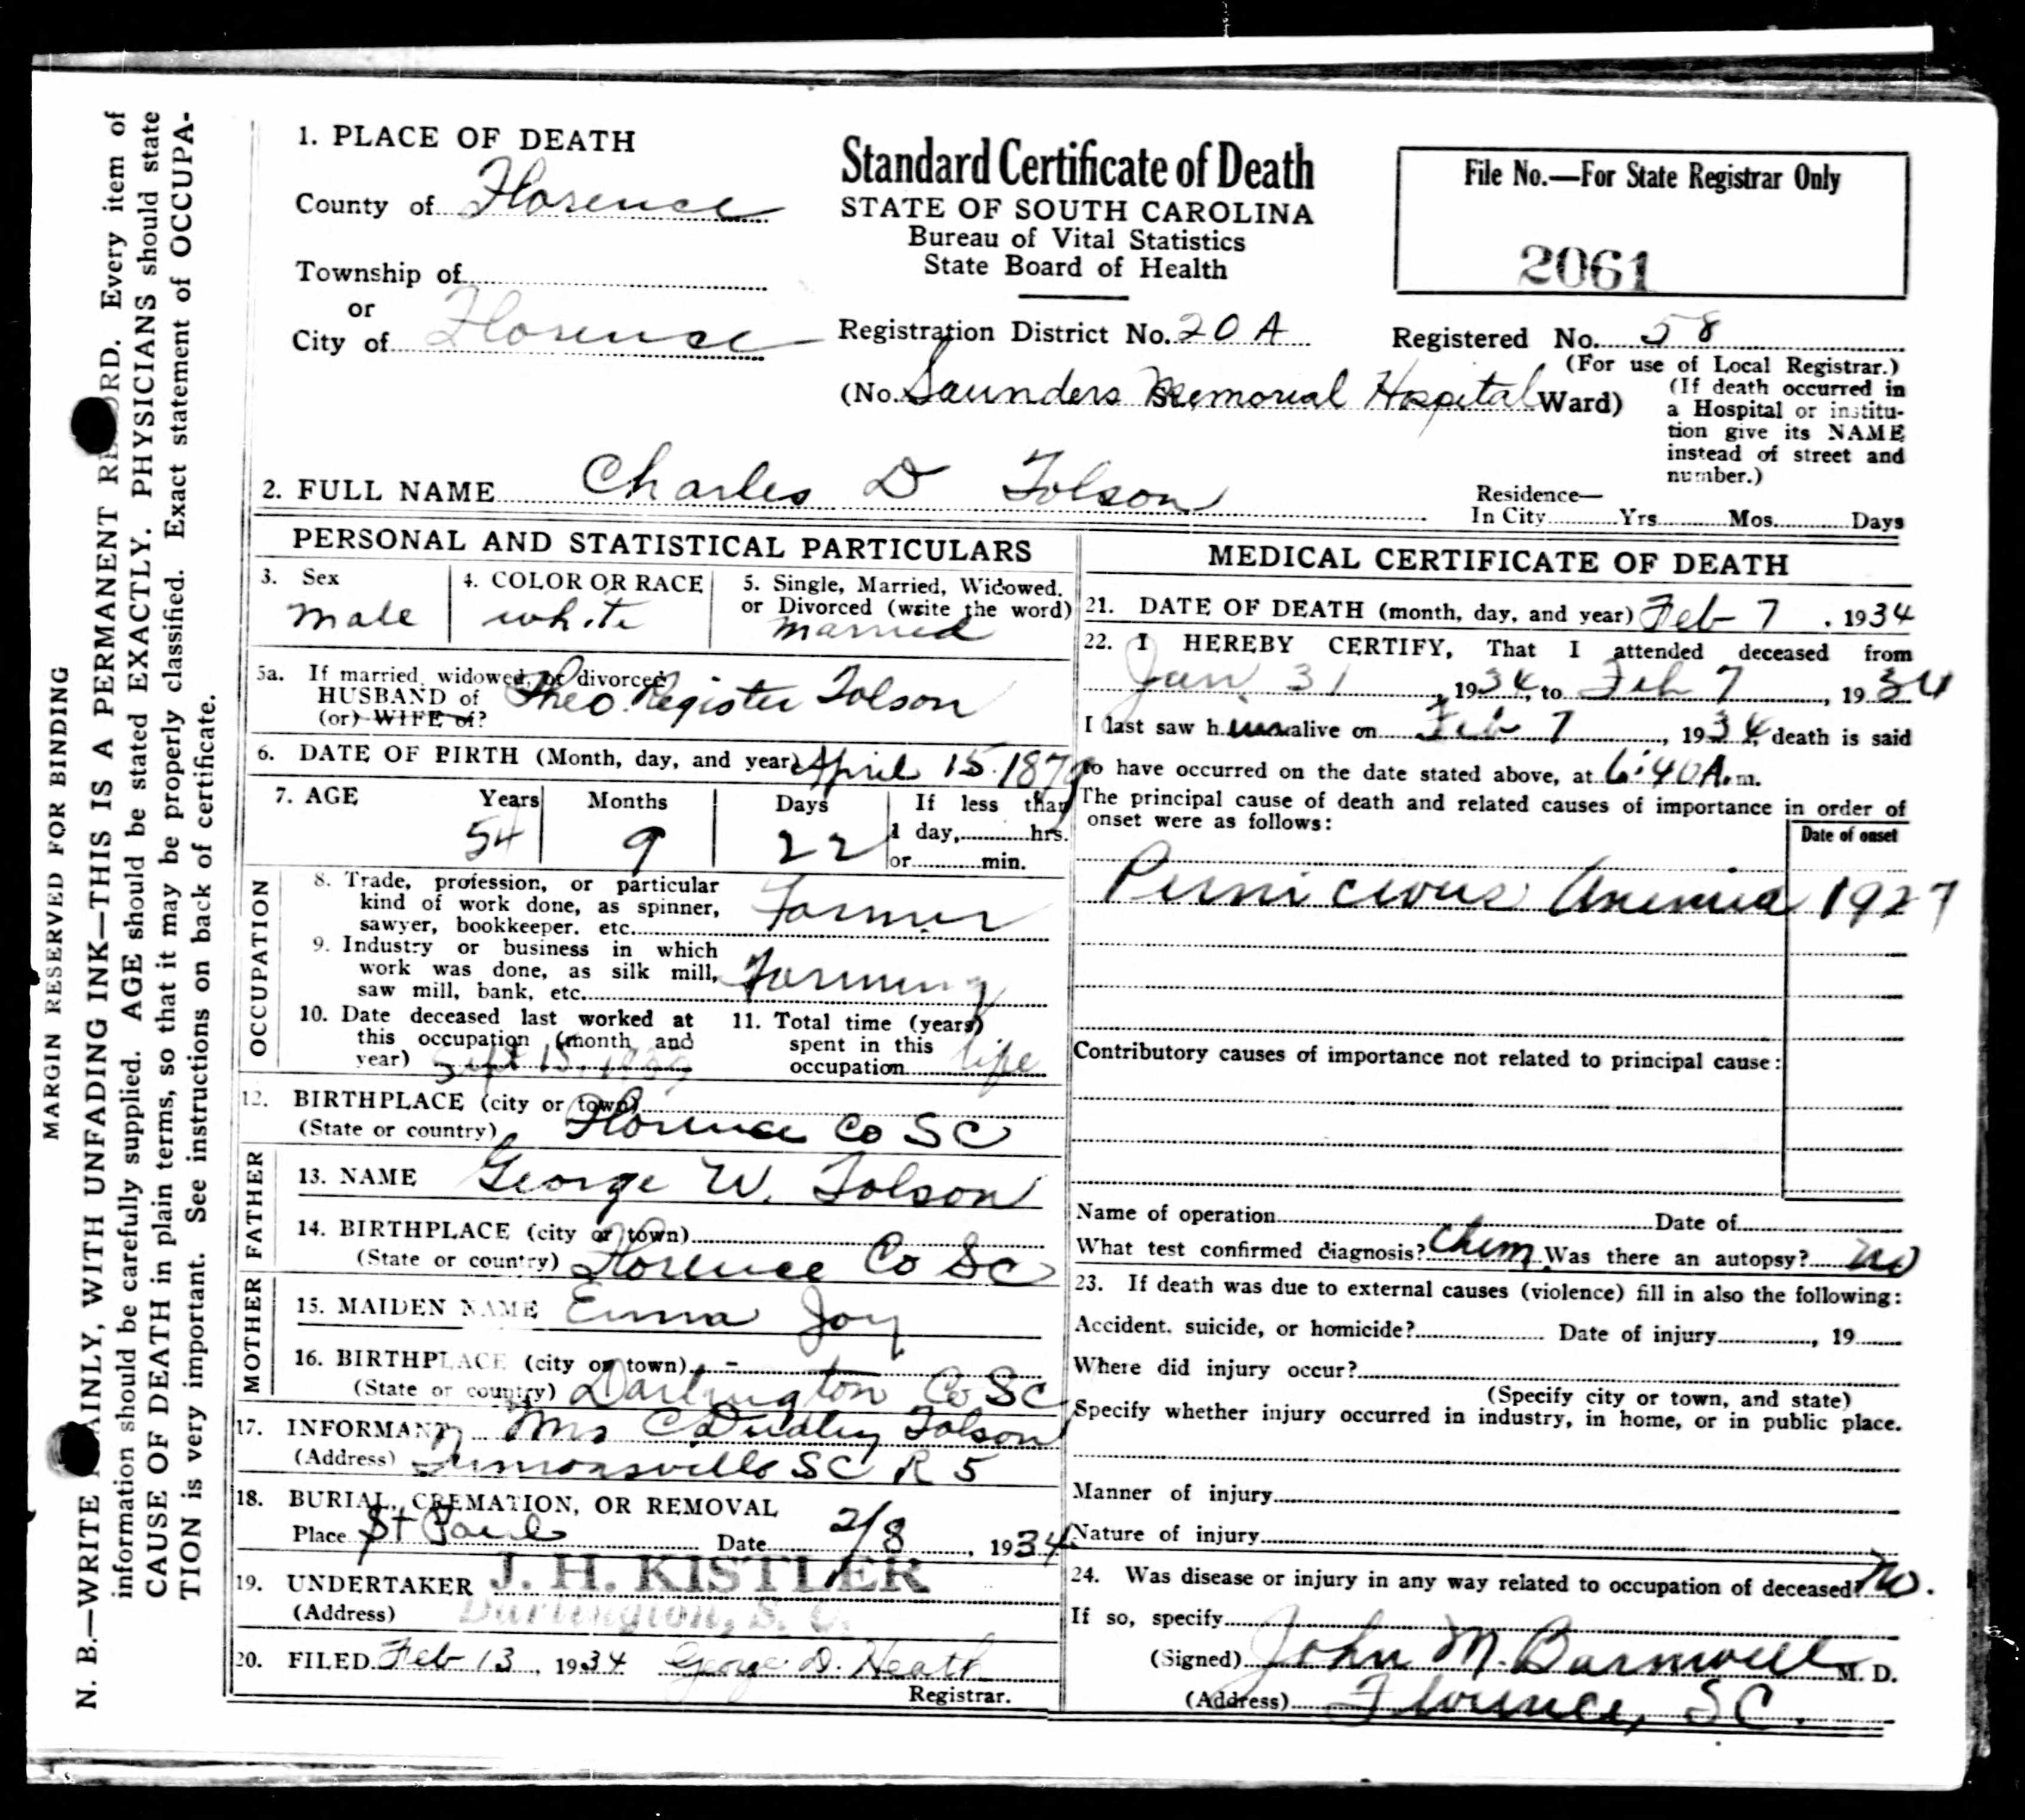 MARGIN RESERVED FOR BINDING
N. B.—WRITE PLAINLY, WITH UNFADING INK—THIS IS A PERMANENT RECORD. Every item of
information should be carefully supplied. AGE should be stated EXACTLY. PHYSICIANS should state
CAUSE OF DEATH in plain terms, so that it may be properly classified. Exact statement of OCCUPA-
TION is very important. See instructions on back of certificate.
1. PLACE OF DEATH
County of Florence
Township of
or
City of Florence
Standard Certificate of Death
STATE OF SOUTH CAROLINA
Bureau of Vital Statistics
State Board of Health
Registration District No. 20 A
(No. Saunders Memorial Hospital Ward)
File No.—For State Registrar Only
2061
Registered No. 58
(For use of Local Registrar.)
(If death occurred in
a Hospital or institu-
tion give its NAME
instead of street and
number.)
2. FULL NAME Charles D Tolson
Residence—
In City Yrs Mos. Days
PERSONAL AND STATISTICAL PARTICULARS
3. Sex
male
4. COLOR OR RACE
white
5. Single, Married, Widowed,
or Divorced (write the word)
married
5a. If married, widowed, or divorced
HUSBAND of Theo. Register Tolson
(or) WIFE of?
6. DATE OF BIRTH (Month, day, and year) April 15. 1879
7. AGE Years Months Days If less than
54 9 22 1 day, hrs.
or min.
OCCUPATION
8. Trade, profession, or particular
kind of work done, as spinner,
sawyer, bookkeeper. etc. Farmer
9. Industry or business in which
work was done, as silk mill,
saw mill, bank, etc. Farming
10. Date deceased last worked at
this occupation (month and
year) Sept 15.
11. Total time (years)
spent in this
occupation life
12. BIRTHPLACE (city or town)
(State or country) Florence Co SC
FATHER
13. NAME George W. Tolson
14. BIRTHPLACE (city or town)
(State or country) Florence Co SC
MOTHER
15. MAIDEN NAME Emma Joy
16. BIRTHPLACE (city or town) -
(State or country) Darlington Co SC
17. INFORMANT Mrs C Dudley Tolson
(Address) Timmonsville SC R 5
18. BURIAL, CREMATION, OR REMOVAL
Place St Paul Date 2/8, 1934
19. UNDERTAKER J. H. KISTLER
(Address) Darlington, S. C.
20. FILED Feb 13, 1934 George D. Heath
Registrar.
MEDICAL CERTIFICATE OF DEATH
21. DATE OF DEATH (month, day, and year) Feb 7. 1934
22. I HEREBY CERTIFY, That I attended deceased from
Jan. 31, 1934, to Feb 7, 1934
I last saw him alive on Feb 7, 1934, death is said
to have occurred on the date stated above, at 6:40 A.m.
The principal cause of death and related causes of importance in order of
onset were as follows:
Date of onset
Pernicious Anemia 1927
Contributory causes of importance not related to principal cause:
Name of operation Date of
What test confirmed diagnosis? Chem. Was there an autopsy? no
23. If death was due to external causes (violence) fill in also the following:
Accident, suicide, or homicide? Date of injury, 19
Where did injury occur?
(Specify city or town, and state)
Specify whether injury occurred in industry, in home, or in public place.
Manner of injury
Nature of injury
24. Was disease or injury in any way related to occupation of deceased? No.
If so, specify
(Signed) John M. Barnwell M. D.
(Address) Florence, SC.